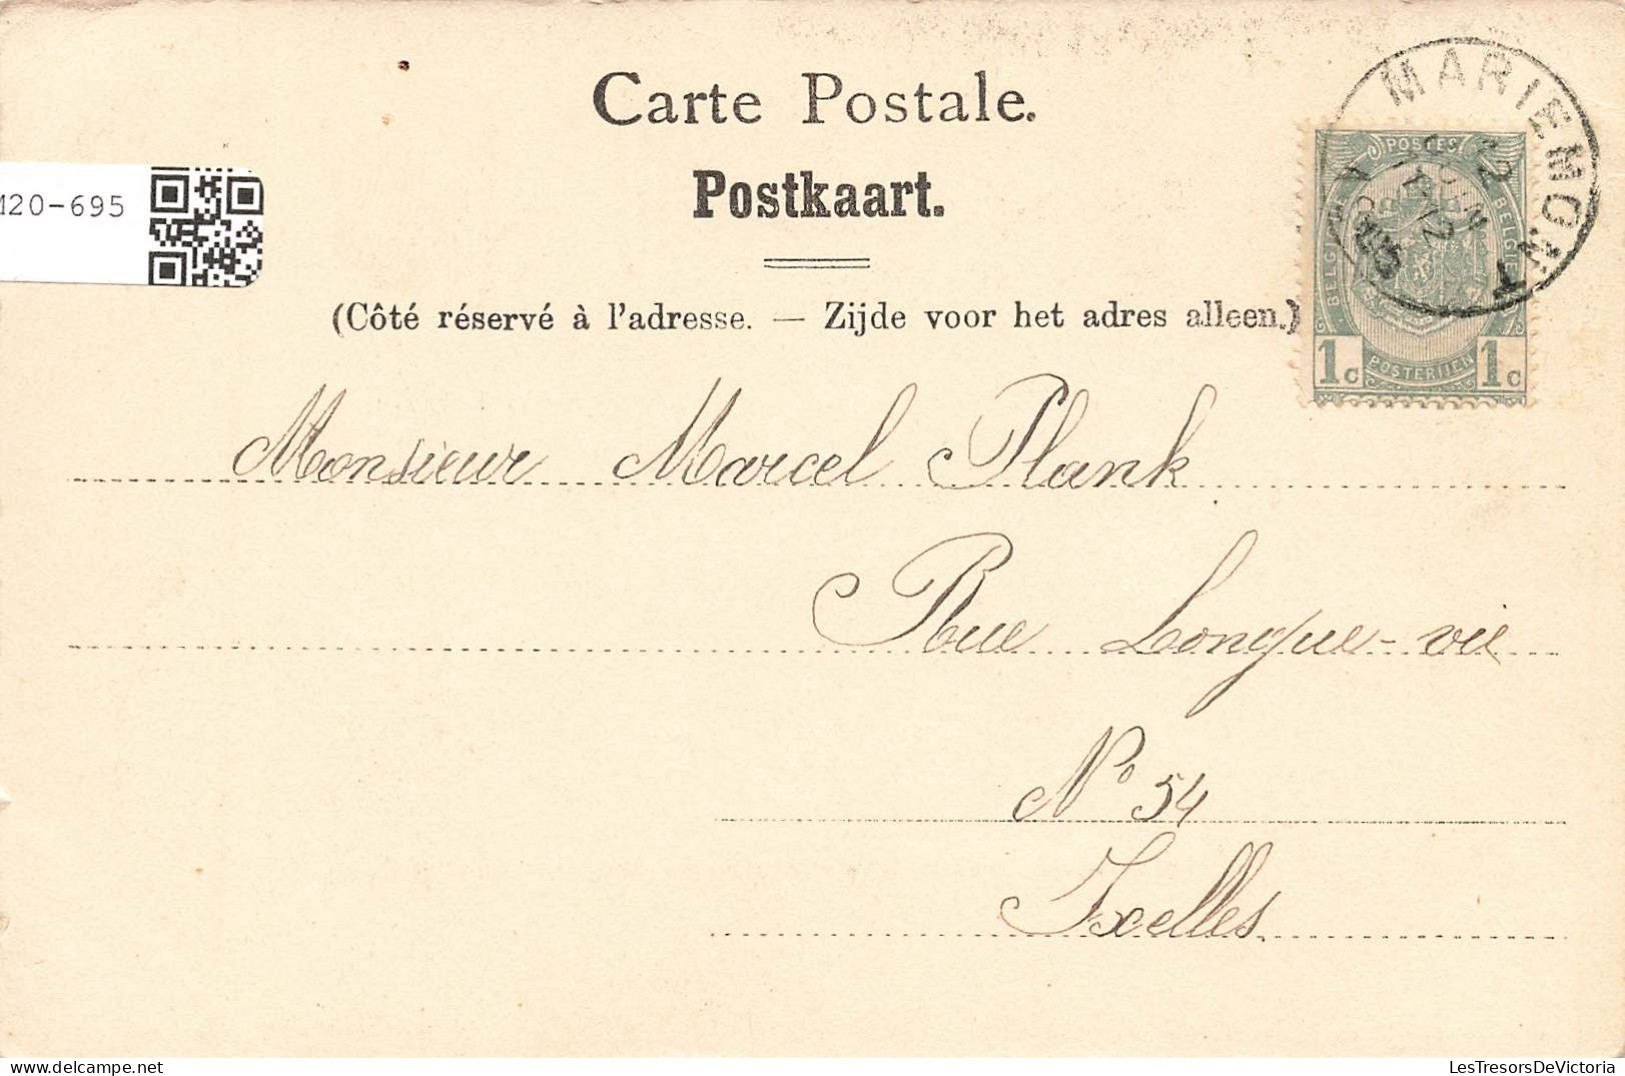 Carte Postale.
Postkaart.
(Côté réservé à l'adresse. — Zijde voor het adres alleen.)
MARIEMONT
POSTES
BELGIQUE
BELGIË
POSTERIJEN
1c 1c
M20-695
Monsieur Marcel Plank
Rue Longue-vie
N° 54
Ixelles
LesTresorsDeVictoria